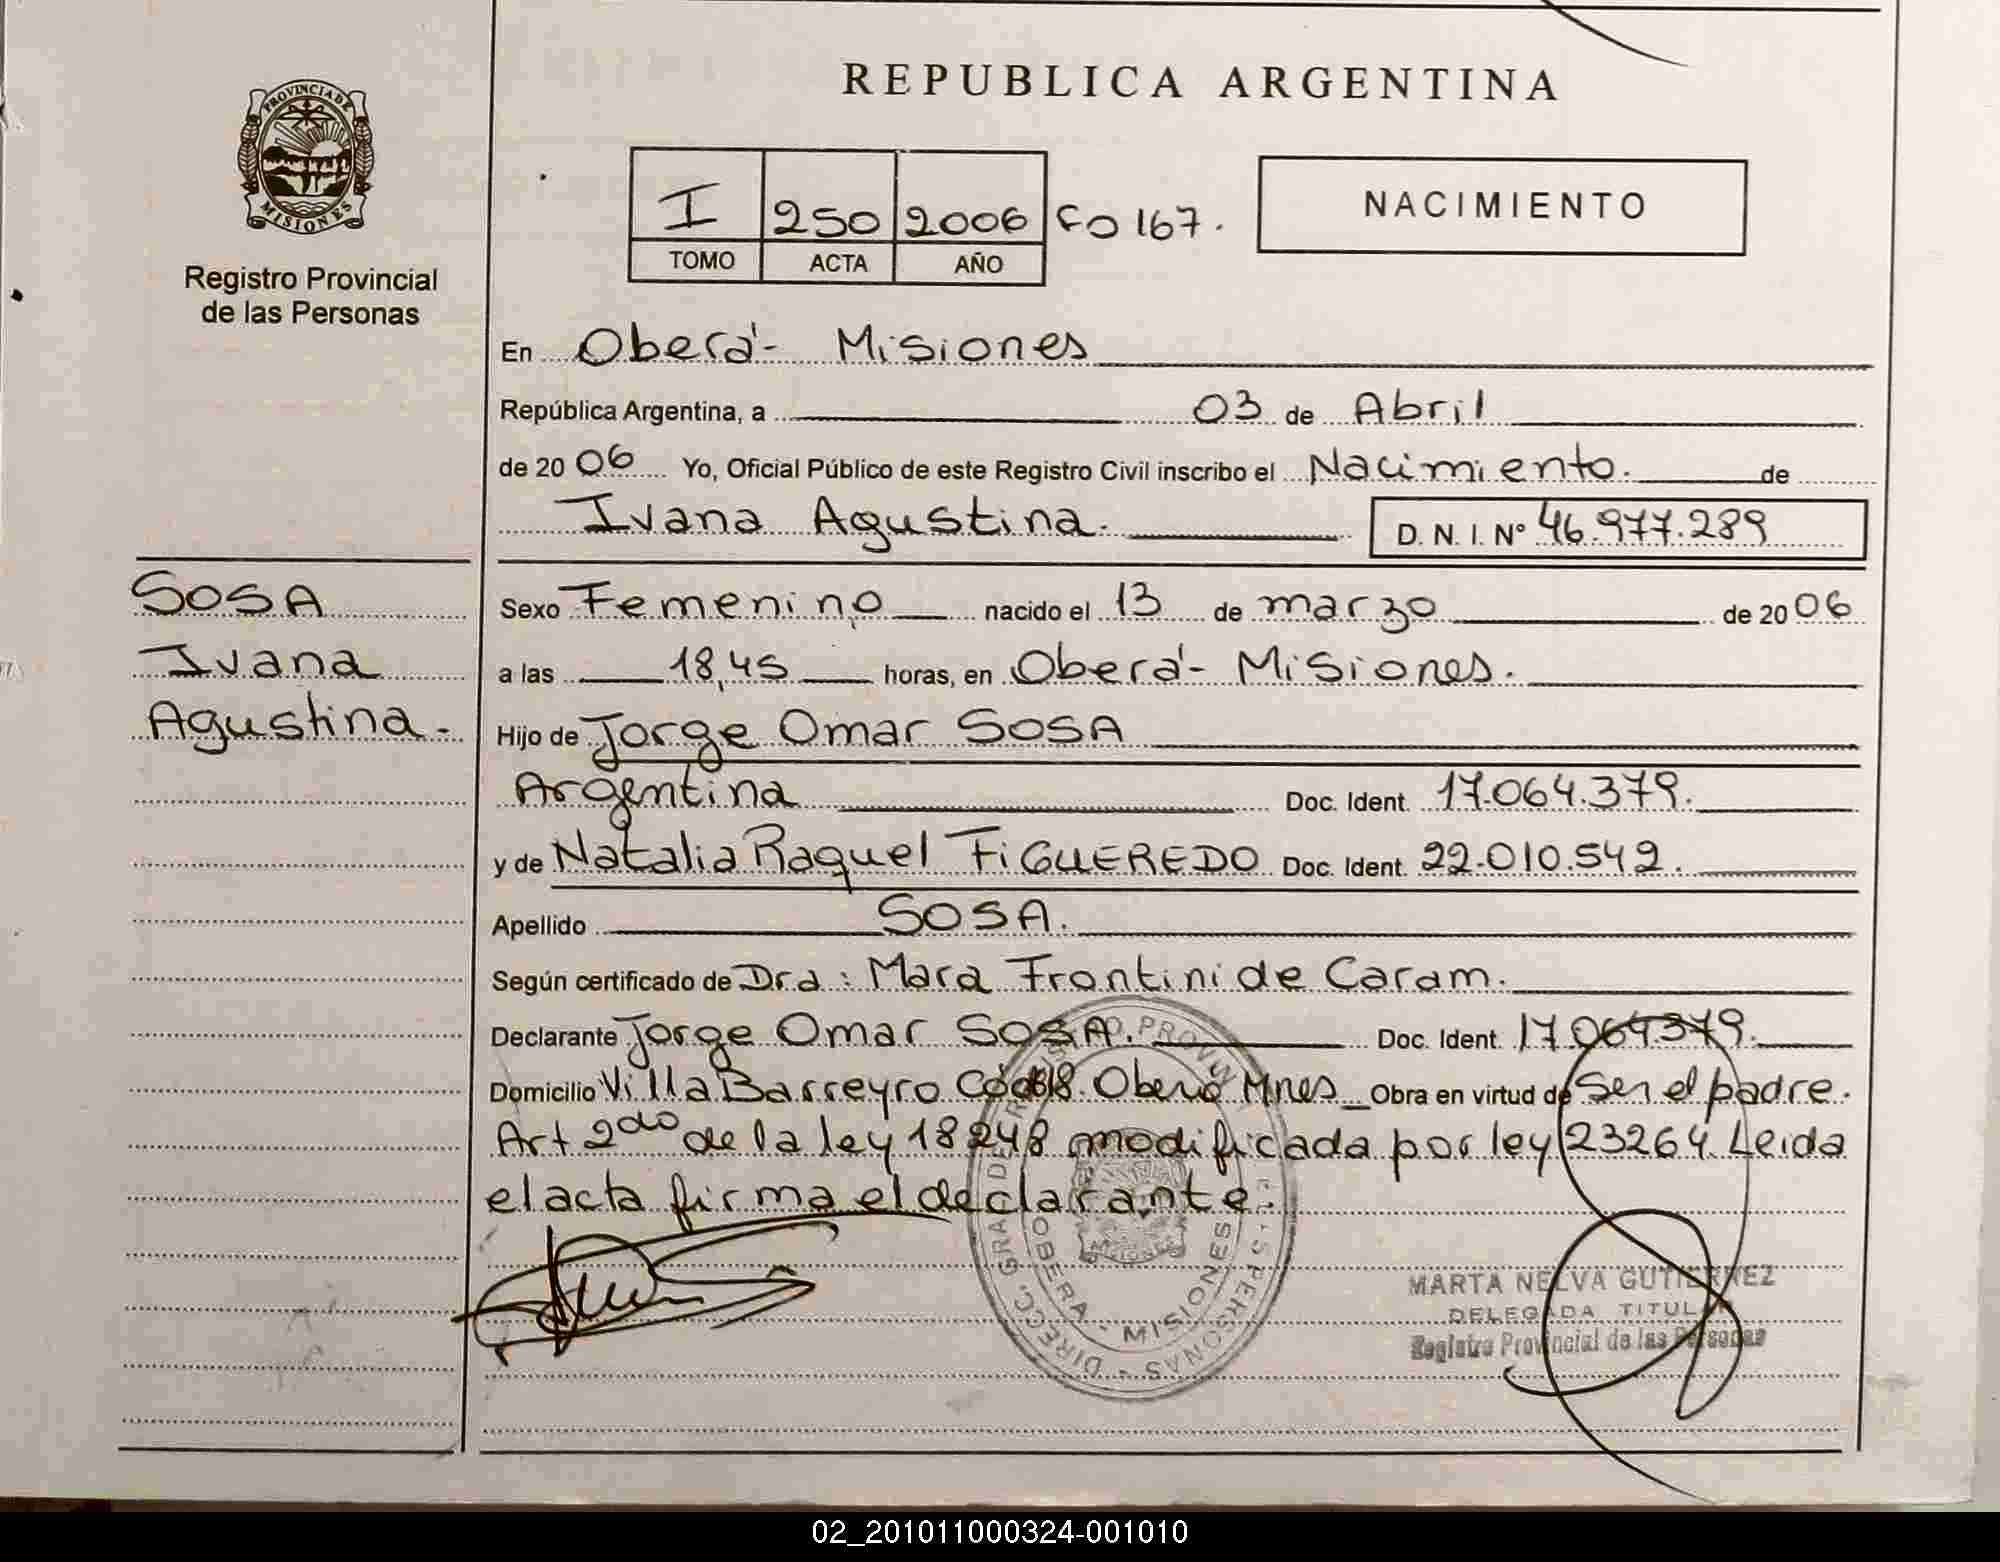 REPUBLICA ARGENTINA
PROVINCIA DE
MISIONES
Registro Provincial
de las Personas
I 250 2006 Fo 167.
TOMO ACTA AÑO
NACIMIENTO
En Oberá - Misiones
República Argentina, a 03 de Abril
de 2006 Yo, Oficial Público de este Registro Civil inscribo el Nacimiento. de
Ivana Agustina. D. N. I. Nº 46.977.289
SOSA
Ivana
Agustina.-
Sexo Femenino nacido el 13 de marzo de 2006
a las 18,45 horas, en Oberá - Misiones.
Hijo de Jorge Omar SOSA
Argentina Doc. Ident. 17.064.379.
y de Natalia Raquel FIGUEREDO Doc. Ident. 22.010.542.
Apellido SOSA.
Según certificado de Dra: Mara Frontini de Caram.
Declarante Jorge Omar SOSA. Doc. Ident. 17.064.379.
Domicilio Villa Barreyro Oberá Mnes Obra en virtud de Ser el padre.
Art 2do de la ley 18248 modificada por ley 23264. Leida
el acta firma el declarante.
OBERA - MISIONES
MARTA NELVA GUTIERREZ
DELEGADA TITULAR
Registro Provincial de las Personas
02_201011000324-001010